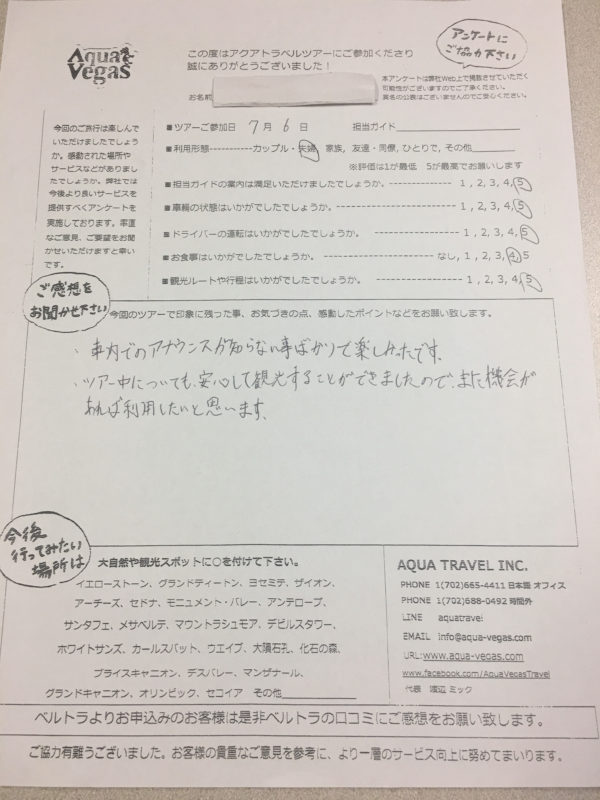 Aqua Vegas
この度はアクアトラベルツアーにご参加くださり
誠にありがとうございました！
アンケートに
ご協力下さい
本アンケートは弊社Web上で掲載させていただく
可能性がございますのでご了承ください。
実名の公表はございませんのでご安心ください。
お名前
今回のご旅行は楽しんで
いただけましたでしょう
か。感動された場所や
サービスなどがありまし
たでしょうか。弊社では
今後より良いサービスを
提供すべくアンケートを
実施しております。率直
なご意見、ご要望をお聞
かせいただけますと幸い
です。
■ツアーご参加日 7月6日 担当ガイド
■利用形態-----------カップル・夫婦, 家族, 友達・同僚, ひとりで, その他
※評価は1が最低 5が最高でお願いします
■担当ガイドの案内は満足いただけましたでしょうか。------------- 1, 2, 3, 4, 5
■車輌の状態はいかがでしたでしょうか。---------------------- 1, 2, 3, 4, 5
■ドライバーの運転はいかがでしたでしょうか。---------------- 1, 2, 3, 4, 5
■お食事はいかがでしたでしょうか。---------------------- なし, 1, 2, 3, 4, 5
■観光ルートや行程はいかがでしたでしょうか。---------------- 1, 2, 3, 4, 5
ご感想を
お聞かせ下さい
今回のツアーで印象に残った事、お気づきの点、感動したポイントなどをお願い致します。
・車内でのアナウンスが知らない事ばかりで楽しかったです。
・ツアー中についても、安心して観光することができましたので、また機会が
あれば利用したいと思います。
今後
行ってみたい
場所は
大自然や観光スポットに○を付けて下さい。
イエローストーン、グランドティートン、ヨセミテ、ザイオン、
アーチーズ、セドナ、モニュメント・バレー、アンテロープ、
サンタフェ、メサベルデ、マウントラシュモア、デビルスタワー、
ホワイトサンズ、カールスバット、ウエイブ、大隕石孔、化石の森、
ブライスキャニオン、デスバレー、マンザナール、
グランドキャニオン、オリンピック、セコイア その他
AQUA TRAVEL INC.
PHONE 1(702)665-4411 日本国 オフィス
PHONE 1(702)688-0492 時間外
LINE aquatravel
EMAIL info@aqua-vegas.com
URL:www.aqua-vegas.com
www.facebook.com/AquaVegasTravel
代表 渡辺 ミック
ベルトラよりお申込みのお客様は是非ベルトラの口コミにご感想をお願い致します。
ご協力有難うございました。お客様の貴重なご意見を参考に、より一層のサービス向上に努めてまいります。